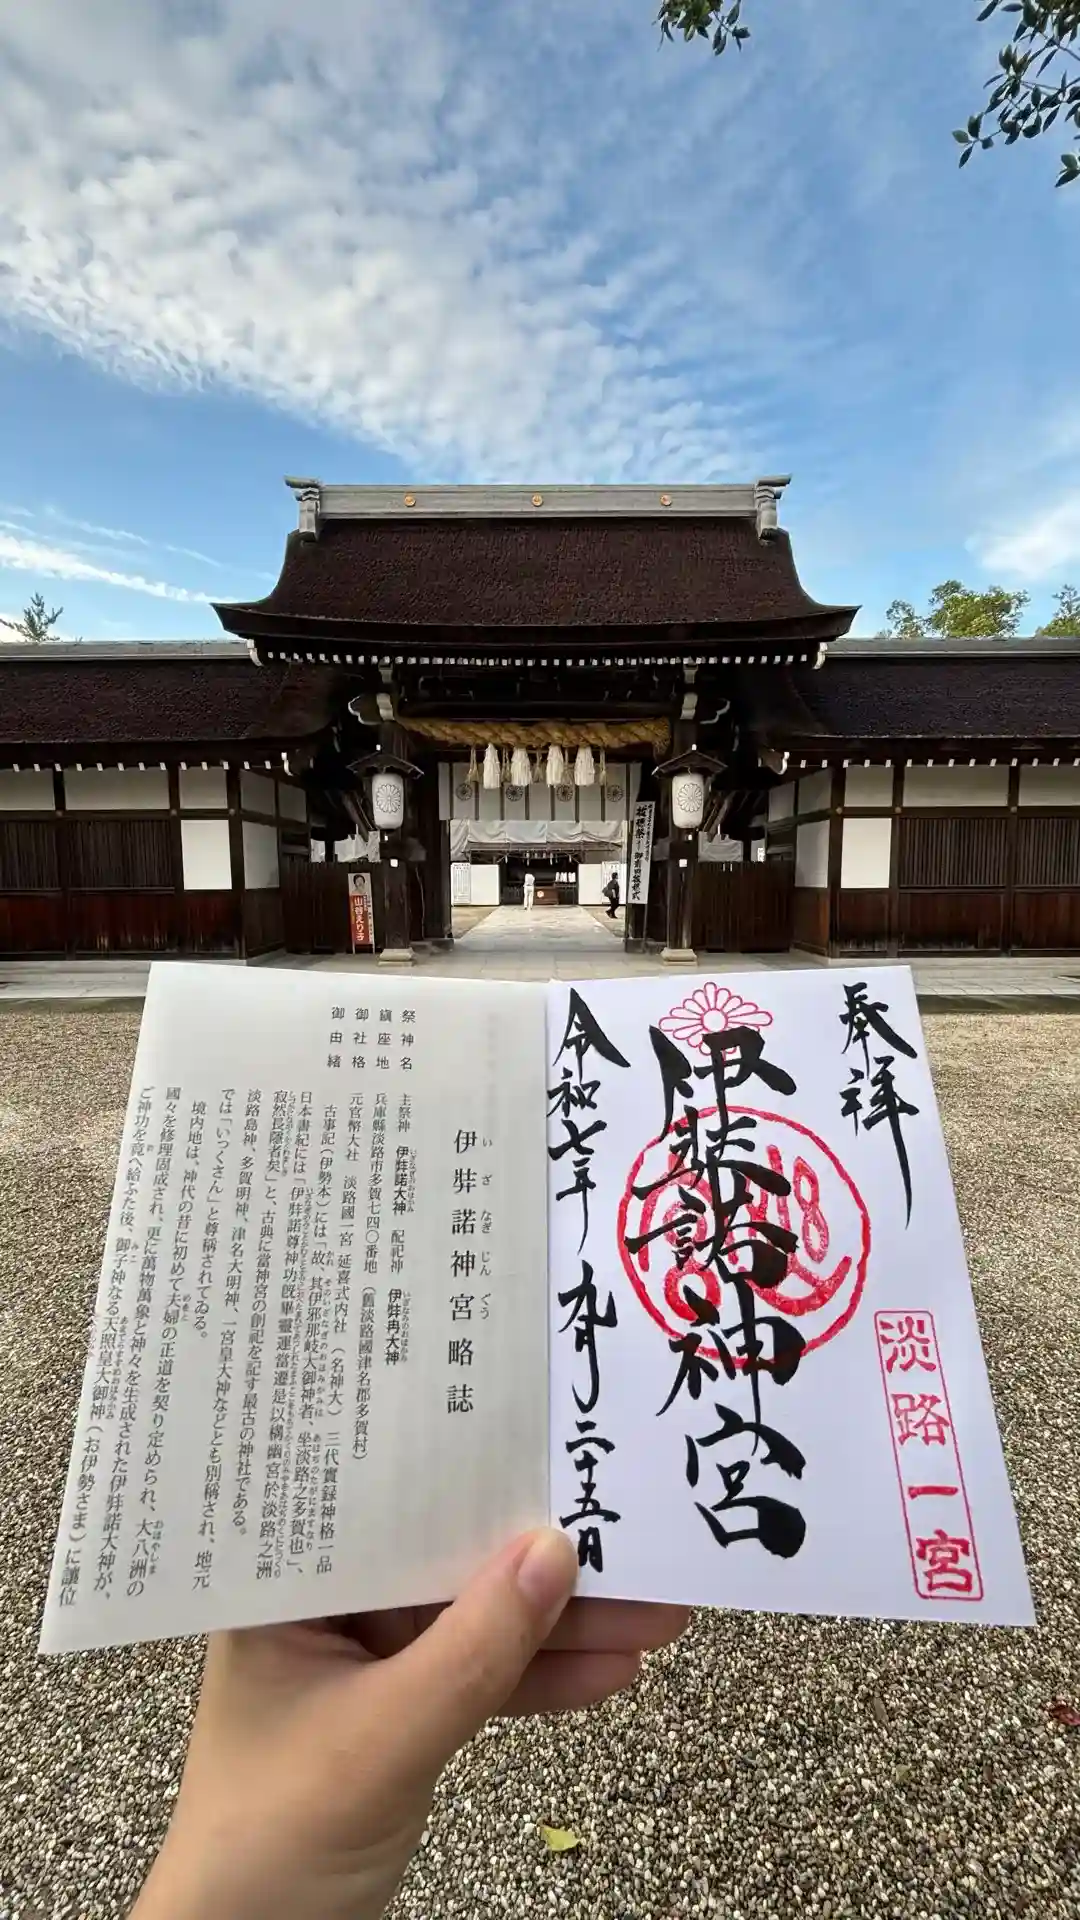 奉拝
淡路一宮
伊弉諾神宮
令和七年 九月二十五日
伊弉諾神宮略誌
いざなぎじんぐう
祭神名 主祭神 伊弉諾大神 配祀神 伊弉冉大神
鎭座地 兵庫縣淡路市多賀七四〇番地（舊淡路國津名郡多賀村）
御社格 元官幣大社 淡路國一宮 延喜式内社（名神大）三代實録神格一品
御由緒 古事記（伊勢本）には「故 其伊邪那岐大御神者、坐淡路之多賀也」、
日本書紀には「伊弉諾尊神功既畢靈運當遷是以構幽宮於淡路之洲
寂然長隱者矣」と、古典に當神宮の創祀を記す最古の神社である。
淡路島神、多賀明神、津名大明神、一宮皇大神などとも別稱され、地元
では「いっくさん」と尊稱されてゐる。
境内地は、神代の昔に初めて夫婦の正道を契り定められ、大八洲の
國々を修理固成され、更に萬物萬象と神々を生成された伊弉諾大神が、
ご神功を竟へ給ふた後、御子神なる天照皇大御神（お伊勢さま）に讓位
山谷えり子